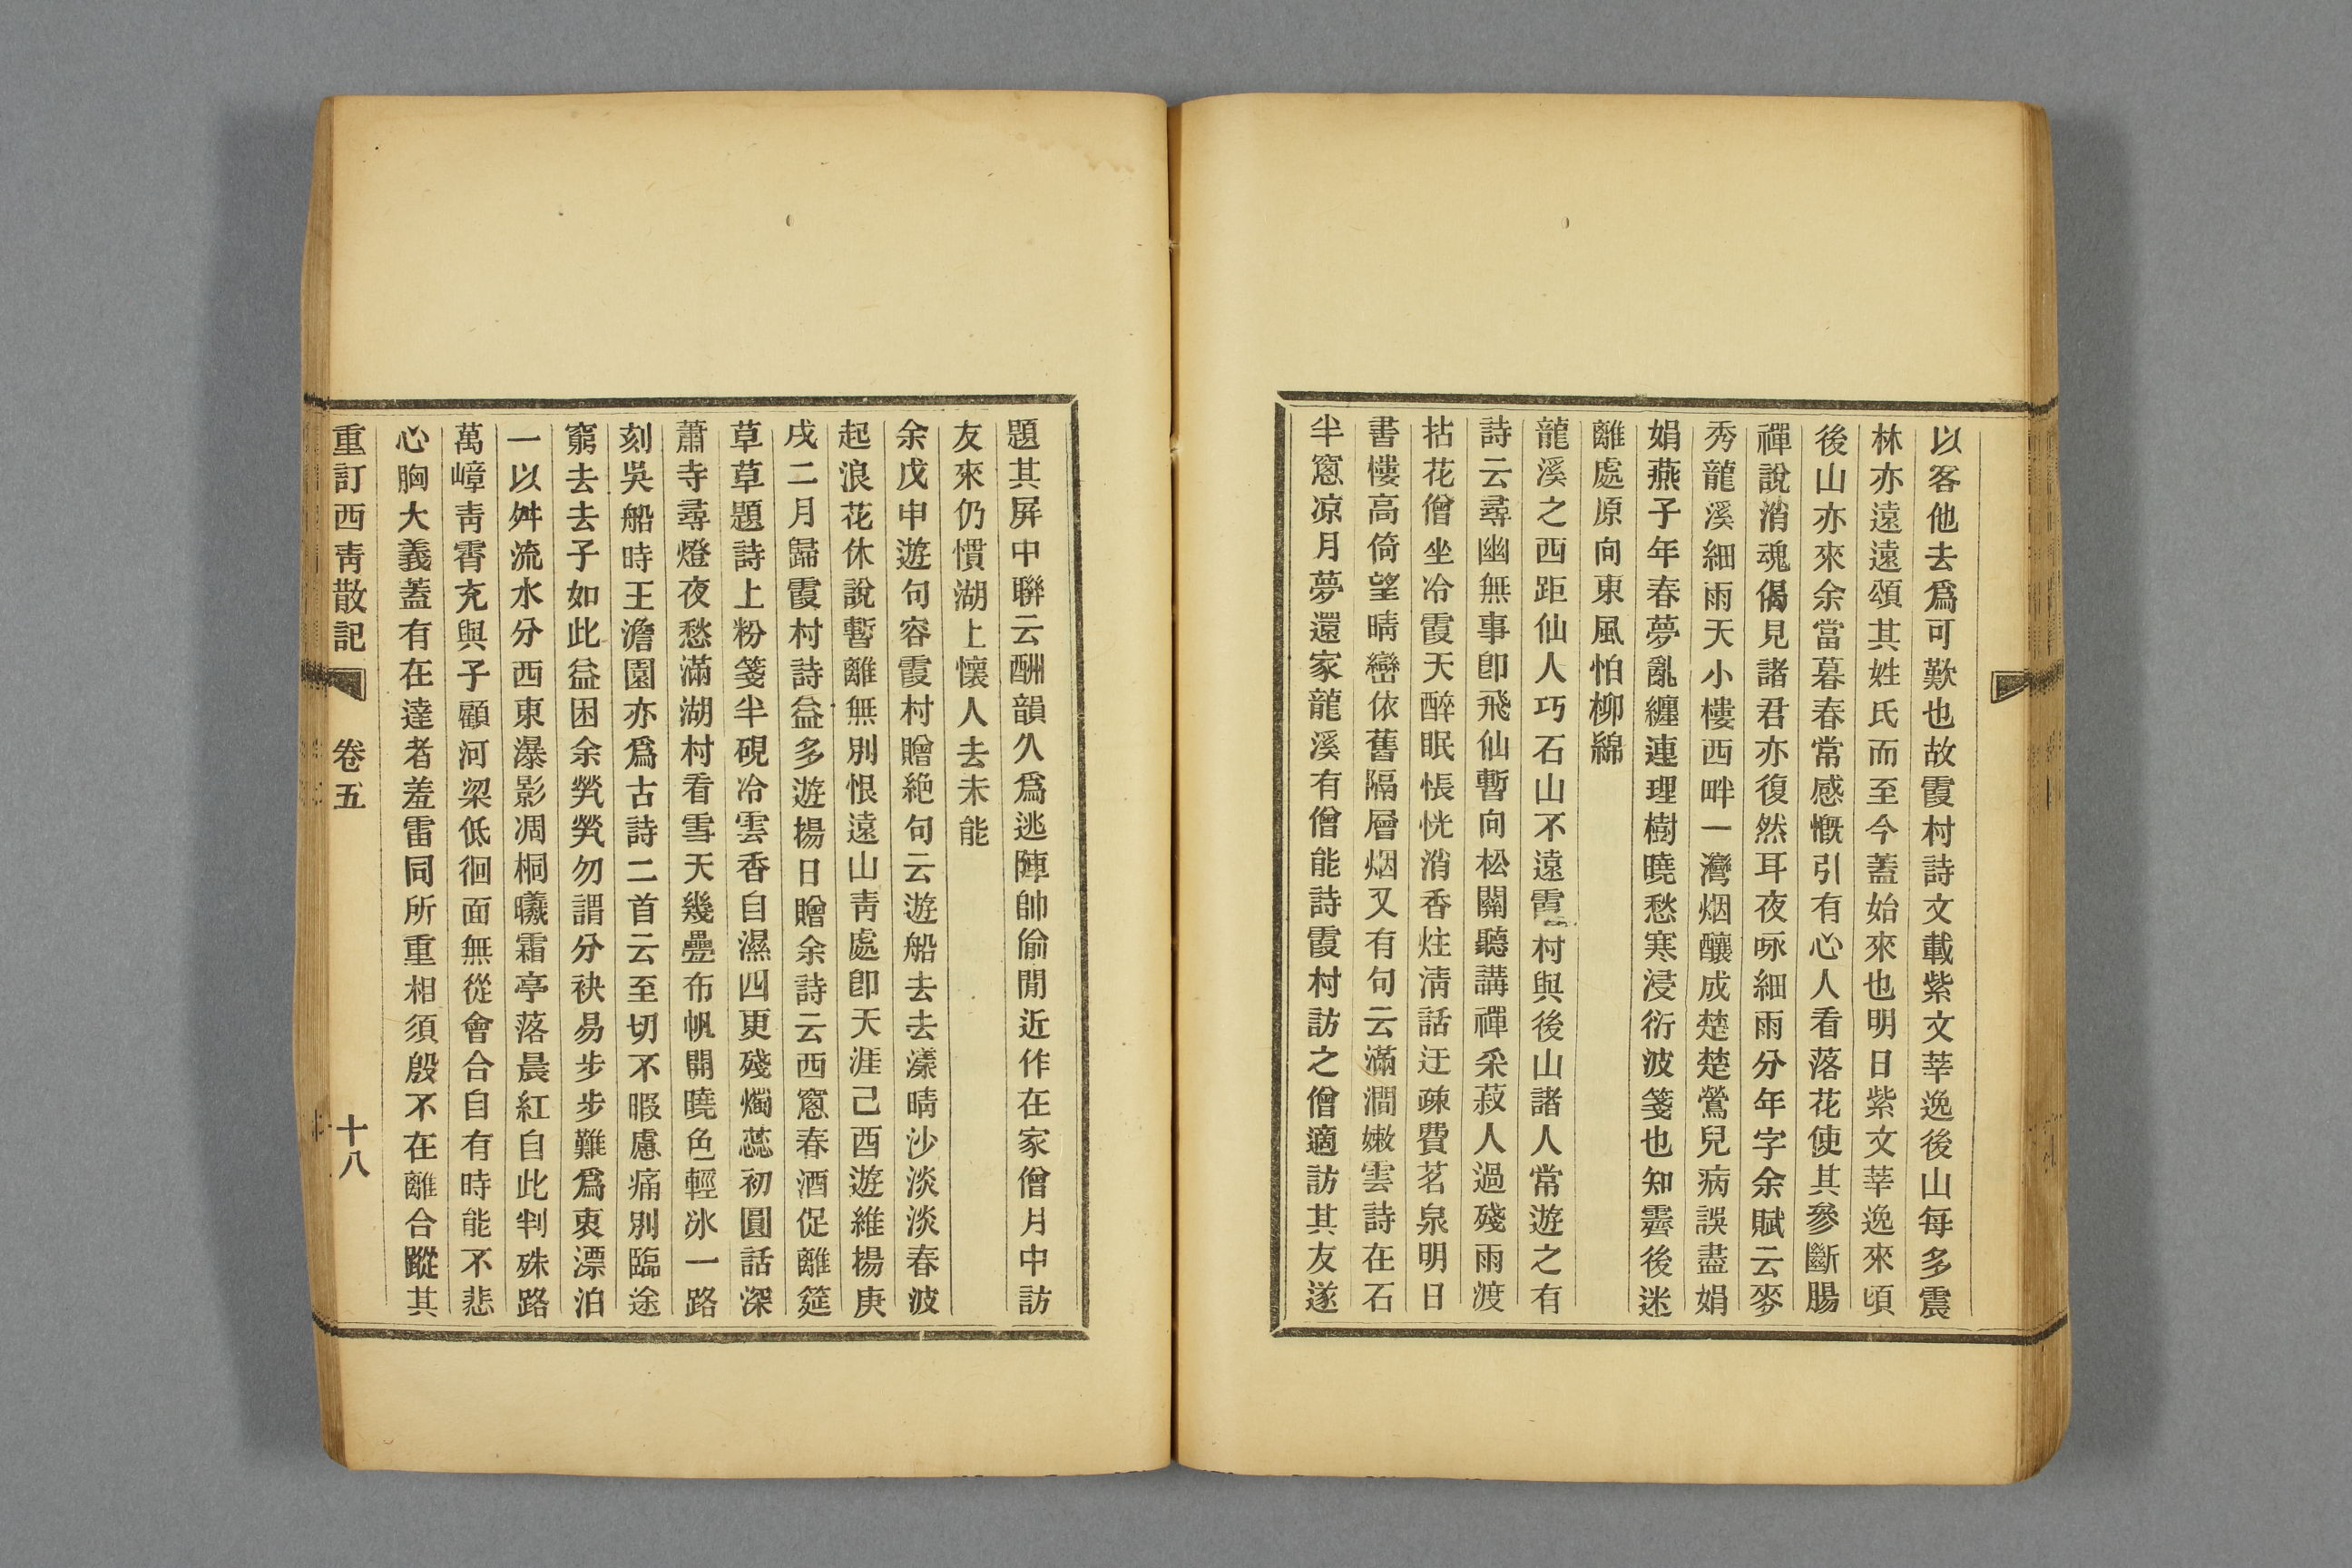 以客他去爲可歎也故霞村詩文載紫文莘逸後山每多震
林亦遠遠頌其姓氏而至今蓋始來也明日紫文莘逸來頃
後山亦來余當暮春常感慨引有心人看落花使其參斷腸
禪說消魂偈見諸君亦復然耳夜咏細雨分年字余賦云麥
秀龍溪細雨天小樓西畔一灣烟釀成楚楚鶯兒病誤盡娟
娟燕子年春夢亂纏連理樹曉愁寒浸衍波箋也知霽後迷
離處原向東風怕柳綿
龍溪之西距仙人巧石山不遠霞村與後山諸人常遊之有
詩云尋幽無事卽飛仙暫向松關聽講禪采菽人過殘雨渡
拈花僧坐冷霞天醉眠悵恍消香炷淸話迂疎費茗泉明日
書樓高倚望晴巒依舊隔層烟又有句云滿澗嫩雲詩在石
半窻凉月夢還家龍溪有僧能詩霞村訪之僧適訪其友遂
題其屛中聯云酬韻久爲逃陣帥偷閒近作在家僧月中訪
友來仍慣湖上懷人去未能
余戊申遊句容霞村贈絶句云遊船去去漾晴沙淡淡春波
起浪花休說暫離無別恨遠山靑處卽天涯己酉遊維揚庚
戌二月歸霞村詩益多遊揚日贈余詩云西窻春酒促離筵
草草題詩上粉箋半硯冷雲香自濕四更殘燭蕊初圓話深
蕭寺尋燈夜愁滿湖村看雪天幾疊布帆開曉色輕冰一路
刻吳船時王澹園亦爲古詩二首云至切不暇慮痛別臨途
窮去去子如此益困余煢煢勿謂分袂易步步難爲衷漂泊
一以舛流水分西東瀑影凋桐曦霜亭落晨紅自此判殊路
萬嶂靑霄充與子顧河梁低徊面無從會合自有時能不悲
心胸大義蓋有在達者羞雷同所重相須殷不在離合蹤其
重訂西靑散記 卷五 十八